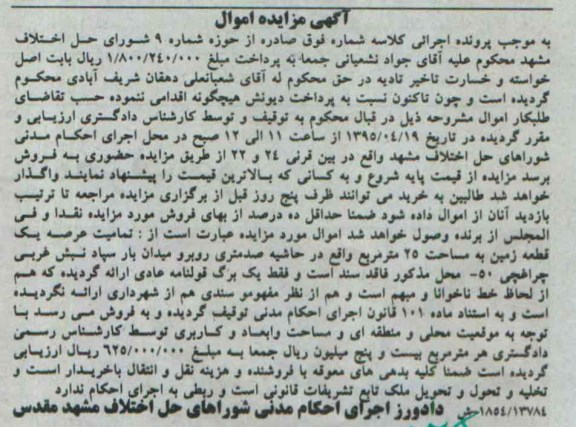 آگهی مزایده اموال
به موجب پرونده اجرائی کلاسه شماره فوق صادره از حوزه شماره ۹ شورای حل اختلاف
مشهد محکوم علیه آقای جواد نشمیانی جمعا به پرداخت مبلغ ۱/۸۰۰/۲۴۰/۰۰۰ ریال بابت اصل
خواسته و خسارت تاخیر تادیه در حق محکوم له آقای شعبانعلی دهقان شریف آبادی محکوم
گردیده است و چون تاکنون نسبت به پرداخت دیونش هیچگونه اقدامی ننموده حسب تقاضای
طلبکار اموال مشروحه ذیل در قبال محکوم به توقیف و توسط کارشناس دادگستری ارزیابی و
مقرر گردیده در تاریخ ۱۳۹۵/۰۴/۱۹ از ساعت ۱۱ الی ۱۲ صبح در محل اجرای احکام مدنی
شوراهای حل اختلاف مشهد واقع در بین قرنی ۲۴ و ۲۲ از طریق مزایده حضوری به فروش
برسد مزایده از قیمت پایه شروع و به کسانی که بالاترین قیمت را پیشنهاد نمایند واگذار
خواهد شد طالبین به خرید می توانند ظرف پنج روز قبل از برگزاری مزایده مراجعه تا ترتیب
بازدید آنان از اموال داده شود ضمنا حداقل ده درصد از بهای فروش مورد مزایده نقدا و فی
المجلس از برنده وصول خواهد شد اموال مورد مزایده عبارت است از : تمامیت عرصه یک
قطعه زمین به مساحت ۲۵ مترمربع واقع در حاشیه صدمتری روبرو میدان بار سپاد نبش غربی
چراغچی ۵۰- محل مذکور فاقد سند است و فقط یک برگ قولنامه عادی ارائه گردیده که هم
از لحاظ خط ناخوانا و مبهم است و هم از نظر مفهومو سندی هم از شهرداری ارائه نگردیده
است و به استناد ماده ۱۰۱ قانون اجرای احکام مدنی توقیف گردیده و به فروش می رسد با
توجه به موقعیت محلی و منطقه ای و مساحت وابعاد و کاربری توسط کارشناس رسمی
دادگستری هر مترمربع بیست و پنج میلیون ریال جمعا به مبلغ ۶۲۵/۰۰۰/۰۰۰ ریال ارزیابی
گردیده است ضمنا کلیه بدهی های معوقه با فروشنده و هزینه نقل و انتقال باخریدار است و
تخلیه و تحول و تحویل ملک تابع تشریفات قانونی است و ربطی به اجرای احکام ندارد
۱۸۵۴/۱۳۷۸۴ش دادورز اجرای احکام مدنی شوراهای حل اختلاف مشهد مقدس